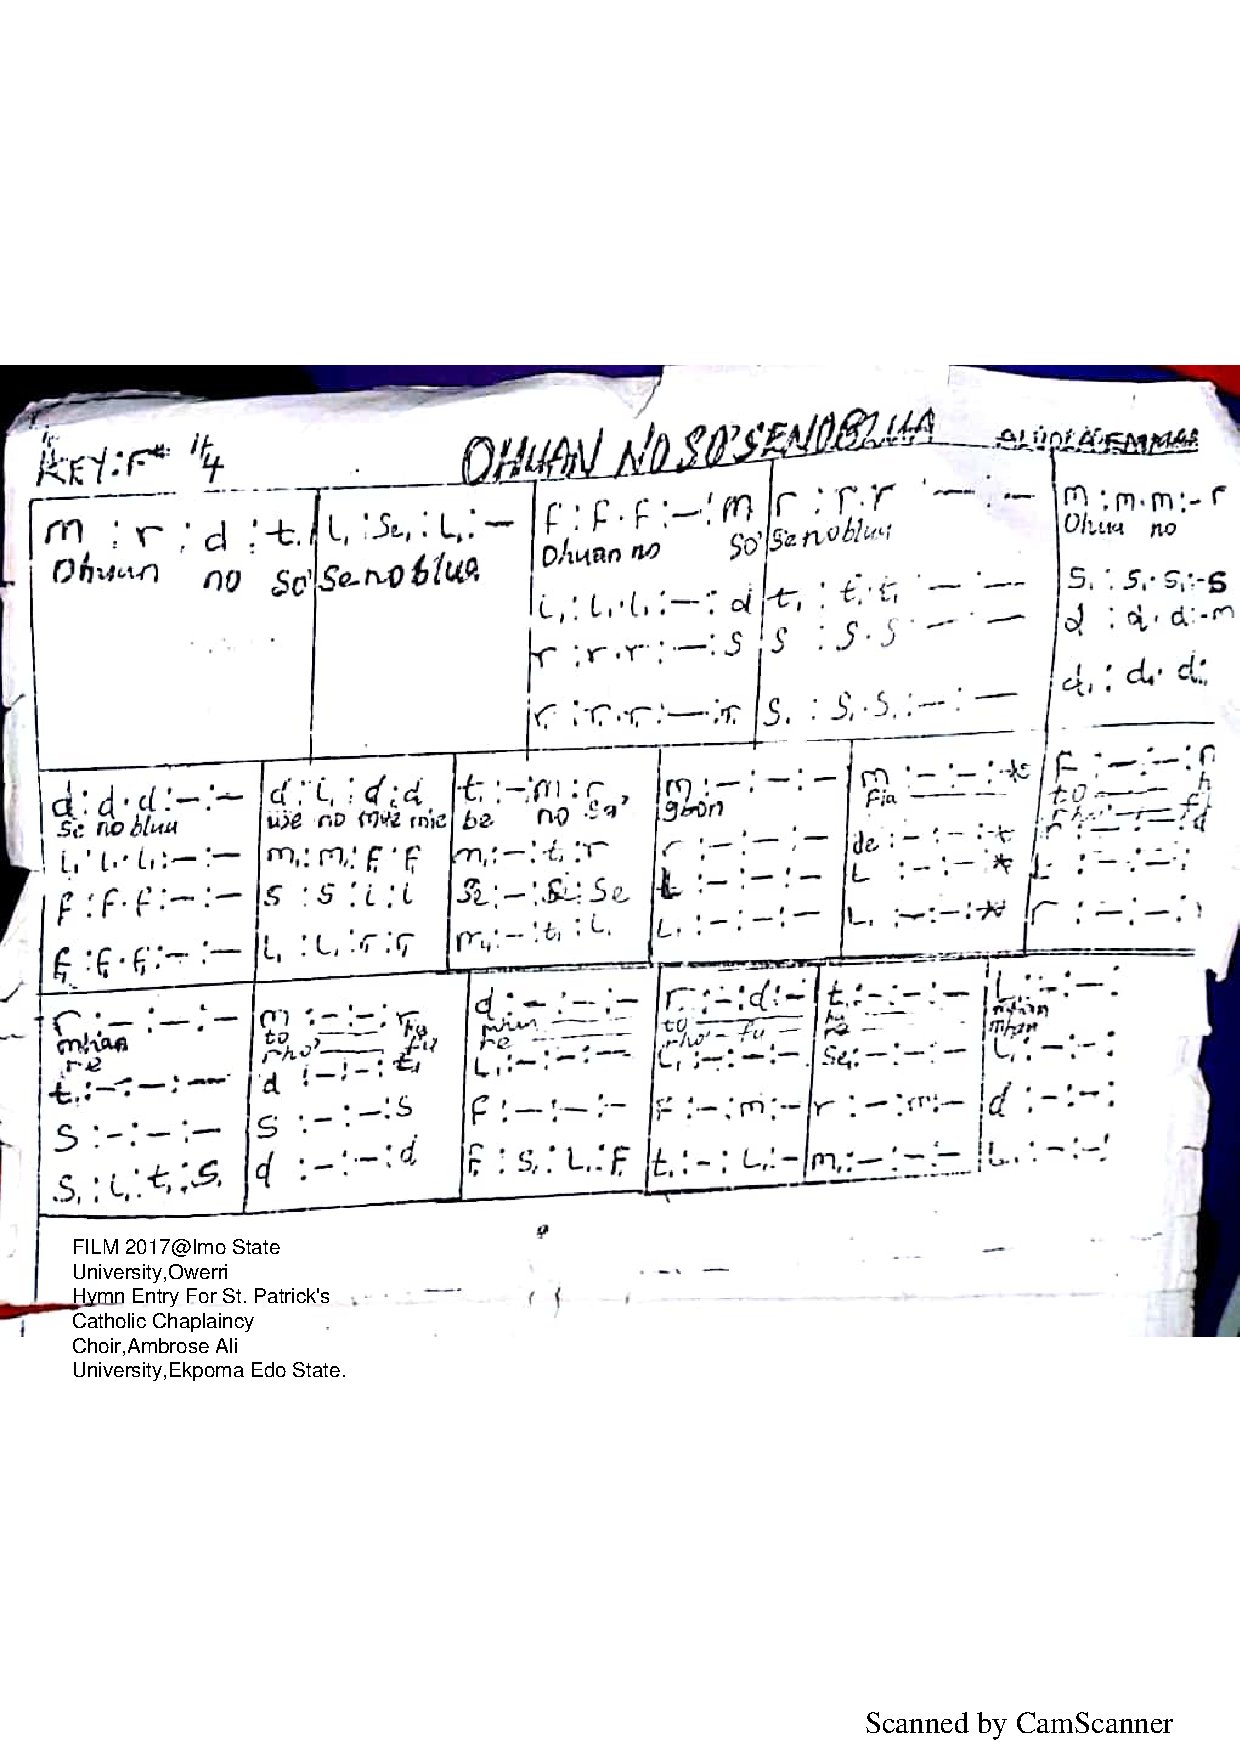 KEY: F# 4/4
OHUAN NO SO'SENOBZUA
m : r : d : t, | l, : se, : l, : — | f : f.f : — : m | r : r.r : — : — | m : m.m : - r
Ohuan no so' Senobzua Ohuan no So' Senobzua Ohua no
l, : l,.l, : — : d | t, : t,.t, — — | s, : s,.s, :-s
r : r.r : — : s | s : s.s — — | d : d.d :-m
r, : r,.r, : — : r, | s, : s,.s, : — : — | d, : d,.d, :
d : d.d : — : — | d : l, : d : d | t, : — : m : r | m : — : — : — | m : — : — : * | f : — : — :
Se nobzua be no so' gbon Fia to
rho'
l, : l,.l, : — : — | m, : m, : f, : f, | m, : — : t, : r | r : — : — : — | de : — : — : * | r : — : — : d
f : f.f : — : — | s : s : l : l | se : — : se : se | t : — : — : — | L : — : — : * | L : — : — :
f, : f,.f, : — : — | l, : l, : r, : r, | m, : — : t, : l, | L, : — : — : — | L, : — : — : * | r : — : — :
r : — : — : — | m : — : — : r | d : — : — : — | r : — : d : — | t, : — : — : — | L, : — : — :
mhan to fu mhn to mhan
re rho' fu re rho' fu re mhan
t, : — : — : — | d : — : — : t, | L, : — : — : — | L, : — : — : — | se, : — : — : — | L, : — : — :
s : — : — : — | s : — : — : s | f : — : — : — | f : — : m : — | r : — : m : — | d : — : — :
s, : l, : t, : s, | d : — : — : d | f, : s, : L, : f, | t, : — : L, : — | m, : — : — : — | L, : — : — :
FILM 2017@Imo State
University,Owerri
Hymn Entry For St. Patrick's
Catholic Chaplaincy
Choir,Ambrose Ali
University,Ekpoma Edo State.
Scanned by CamScanner